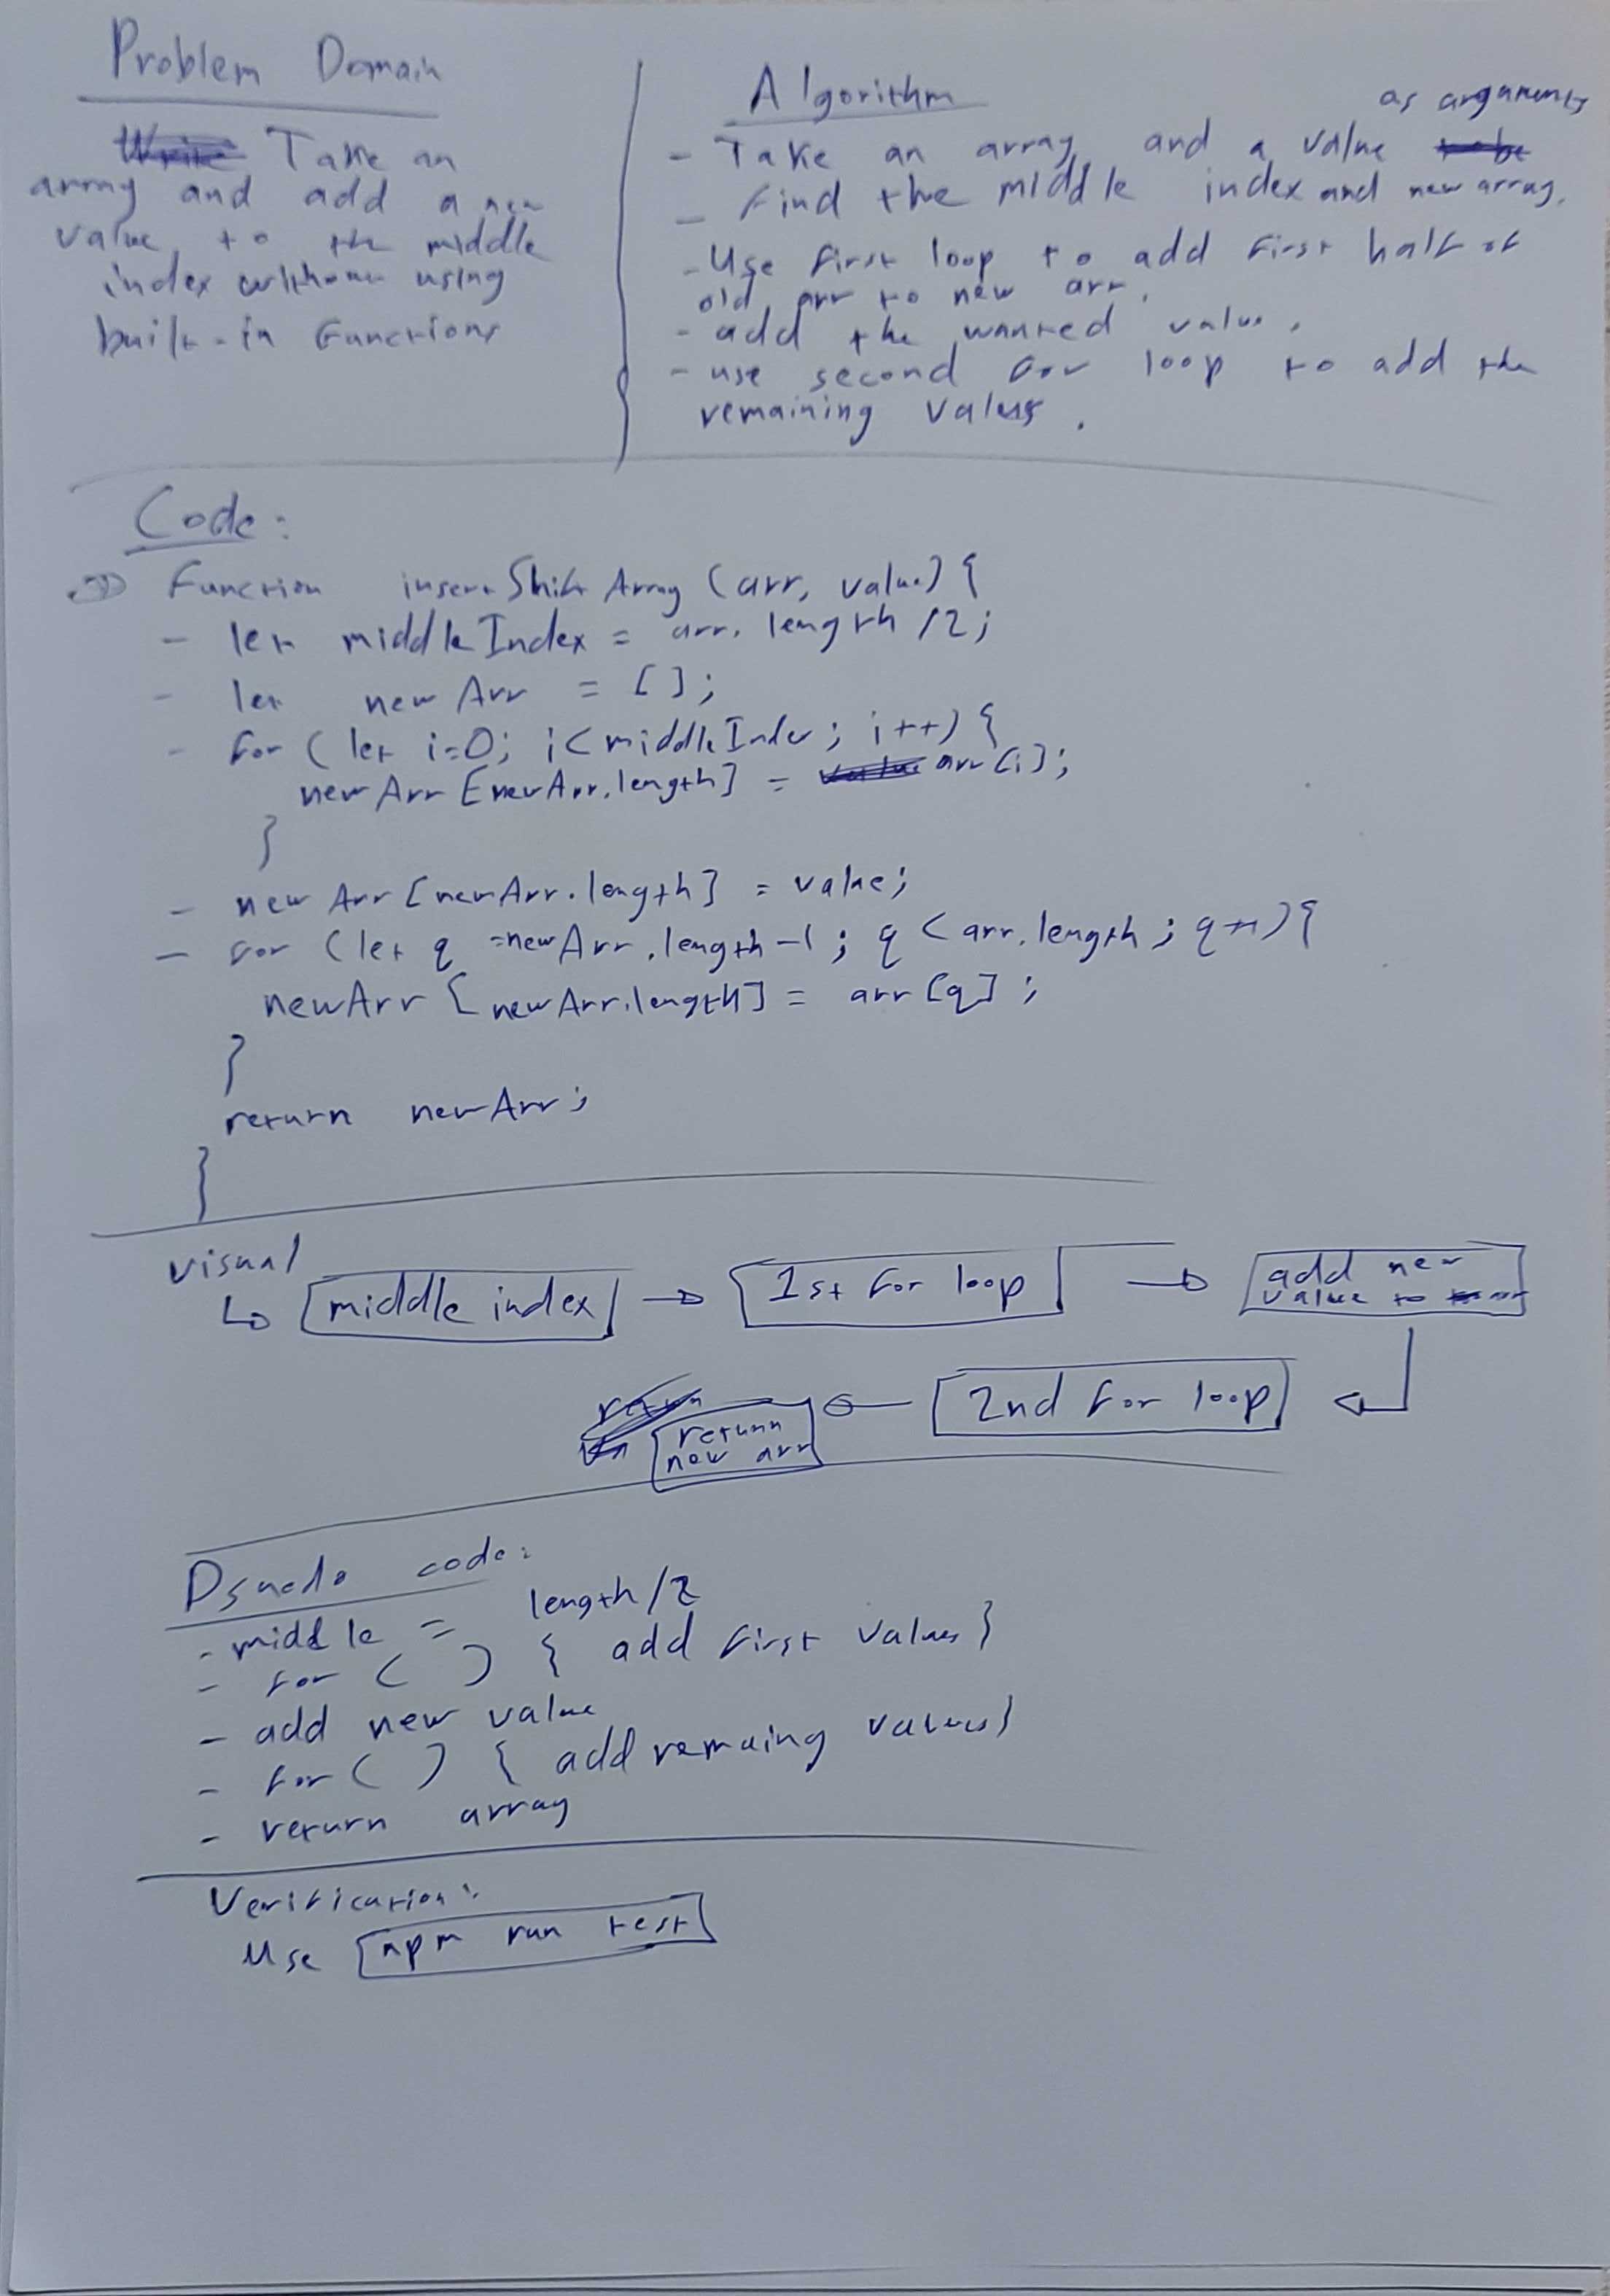 Problem Domain
Take an
array and add a new
value to the middle
index without using
built-in functions
Algorithm
as arguments
- Take an array and a value
- Find the middle index and new array.
- Use first loop to add first half of
old arr to new arr.
- add the wanted value.
- use second for loop to add the
remaining values.
Code:
Function insertShiftArray (arr, value) {
- let middleIndex = arr.length /2;
- let newArr = [];
- for (let i=0; i<middleIndex; i++) {
newArr [newArr.length] = arr[i];
}
- newArr [newArr.length] = value;
- for (let q =newArr.length-1; q < arr.length; q++){
newArr [newArr.length] = arr [q];
}
return newArr;
}
visual
middle index
1st for loop
add new
value to arr
2nd for loop
return
return
new arr
Psuedo code:
- middle = length/2
- for ( ) { add first values }
- add new value
- for ( ) { add remaing values}
- return array
Verification:
Use npm run test